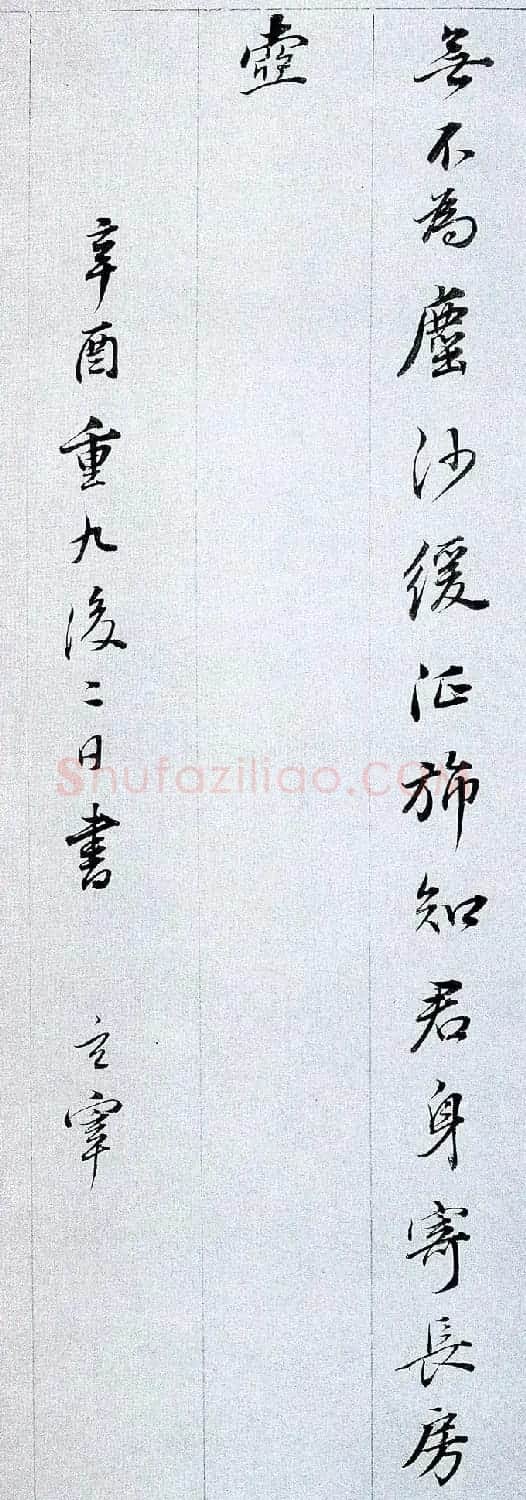 無不為塵沙緩征旆知君身寄長房
壺
辛酉重九後二日書 立宰
Shufaziliao.com